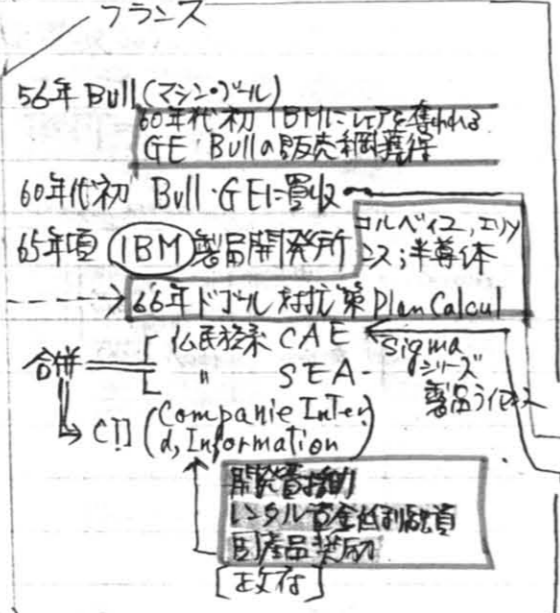 フランス
56年 Bull (マシン・ブール)
60年代初 IBMにシェアを奪われる
GE・Bullの販売網獲得
60年代初 Bull・GEに買収
65年頃 IBM 製品開発所
コルベイユ, エソン
ヌ; 半導体
66年ドゴール対抗策 Plan Calcul
合併
仏民族系 CAE
〃 SEA
Sigma
シリーズ
製品ライセンス
CII (Companie Inter
d, Information)
開発費補助
レンタル資金低利融資
国産品奨励
[政府]